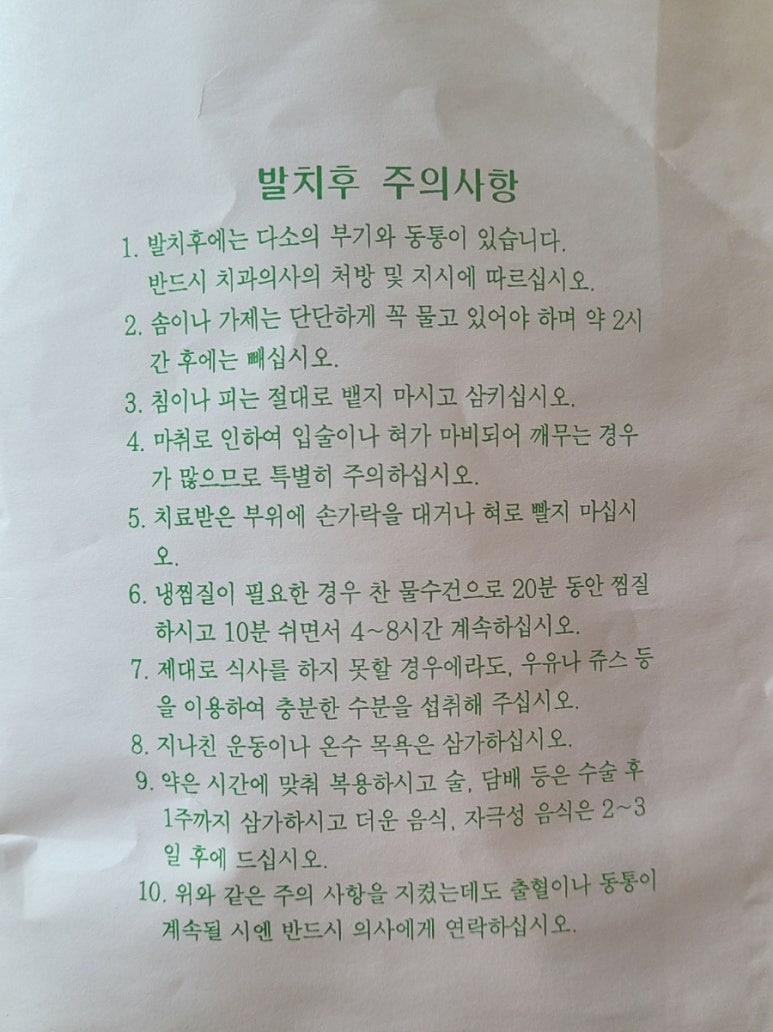 발치후 주의사항
1. 발치후에는 다소의 부기와 동통이 있습니다.
반드시 치과의사의 처방 및 지시에 따르십시오.
2. 솜이나 가제는 단단하게 꼭 물고 있어야 하며 약 2시
간 후에는 빼십시오.
3. 침이나 피는 절대로 뱉지 마시고 삼키십시오.
4. 마취로 인하여 입술이나 혀가 마비되어 깨무는 경우
가 많으므로 특별히 주의하십시오.
5. 치료받은 부위에 손가락을 대거나 혀로 빨지 마십시
오.
6. 냉찜질이 필요한 경우 찬 물수건으로 20분 동안 찜질
하시고 10분 쉬면서 4~8시간 계속하십시오.
7. 제대로 식사를 하지 못할 경우에라도, 우유나 쥬스 등
을 이용하여 충분한 수분을 섭취해 주십시오.
8. 지나친 운동이나 온수 목욕은 삼가하십시오.
9. 약은 시간에 맞춰 복용하시고 술, 담배 등은 수술 후
1주까지 삼가하시고 더운 음식, 자극성 음식은 2~3
일 후에 드십시오.
10. 위와 같은 주의 사항을 지켰는데도 출혈이나 동통이
계속될 시엔 반드시 의사에게 연락하십시오.